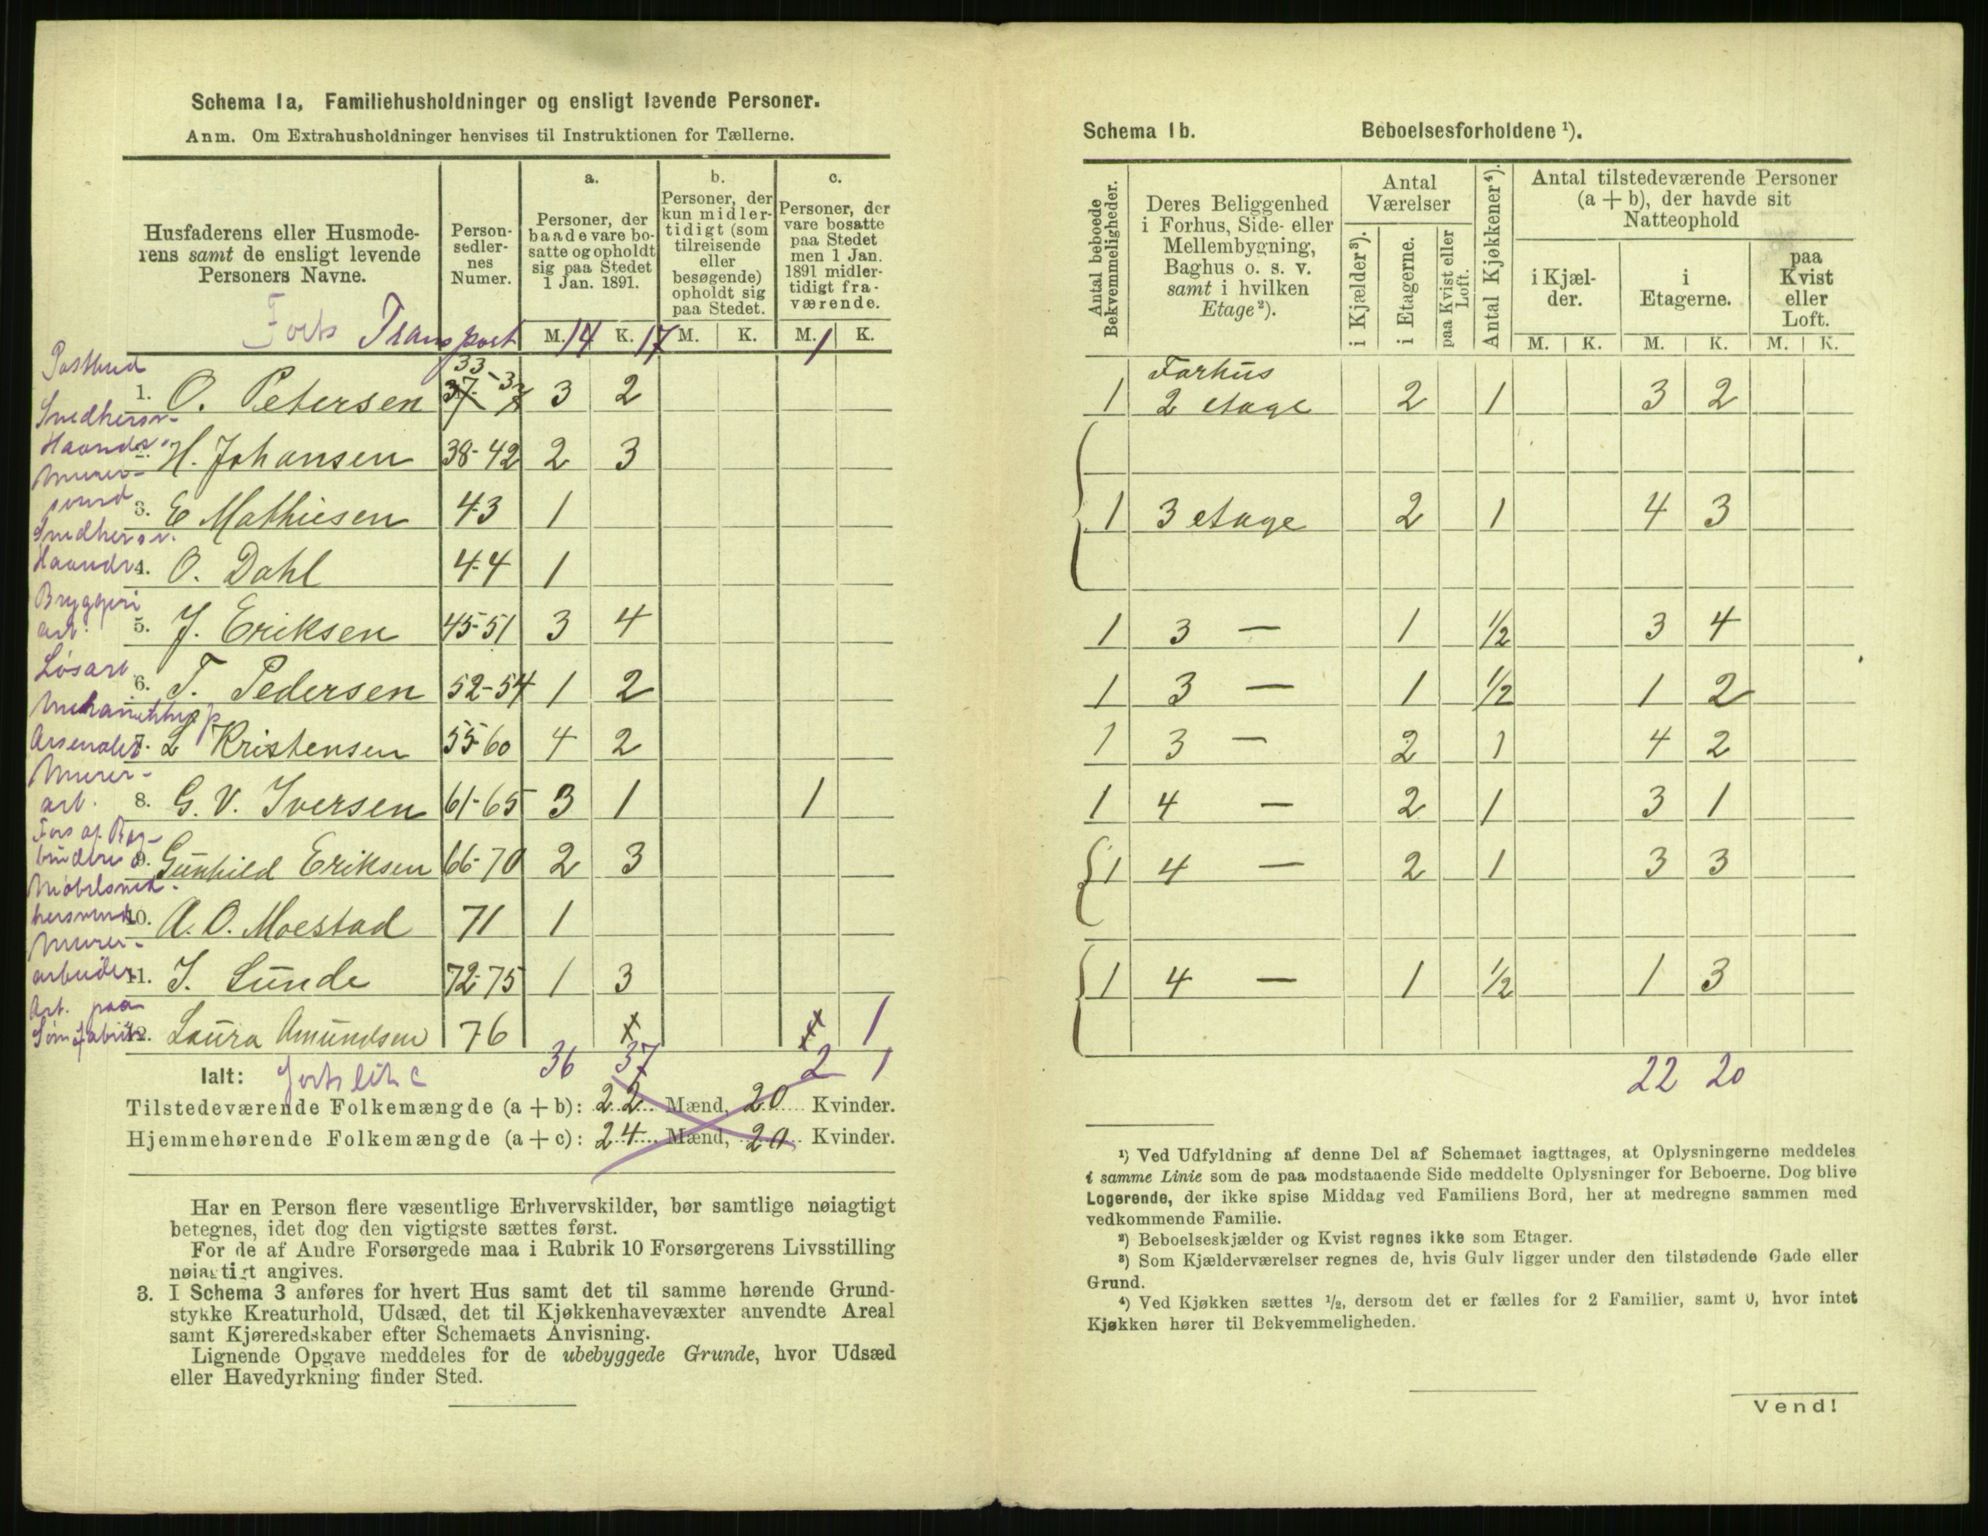 Schema 1a, Familiehusholdninger og ensligt levende Personer.
Anm. Om Extrahusholdninger henvises til Instruktionen for Tællerne.
Husfaderens eller Husmode-
rens samt de ensligt levende
Personers Navne.
Person-
sedler-
nes
Numer.
a.
Personer, der
baade vare bo-
satte og opholdt
sig paa Stedet
1 Jan. 1891.
b.
Personer, der
kun midler-
tidigt (som
tilreisende
eller
besøgende)
opholdt sig
paa Stedet.
c.
Personer, der
vare bosatte
paa Stedet
men 1 Jan.
1891 midler-
tidigt fra-
værende.
Forts Transport M. 14 K. 17 M. K. M. 1 K.
Postbud
1. O. Petersen 33-37 3 2
Smedhersv-
Haandv
2. H. Johansen 38-42 2 3
Murer-
svend
3. E Mathiesen 43 1
Smedhersv.
Haandv
4. O. Dahl 44 1
Bryggeri
arb.
5. J. Eriksen 45-51 3 4
Løsarb.
6. T. Pedersen 52-54 1 2
Arsenalet
7. L Kristensen 55-60 4 2
Murer-
arb.
8. G. V. Iversen 61-65 3 1 1
Fors af Bog-
binderi
9. Gunhild Eriksen 66-70 2 3
Møbelsned-
kersvend
10. A. O. Moestad 71 1
Murer-
arbeider
11. J. Lunde 72-75 1 3
Arb. paa
Sømfabrik
12. Laura Amundsen 76 1
Ialt: 36 37 2 1
Tilstedeværende Folkemængde (a + b): 22 Mænd, 20 Kvinder.
Hjemmehørende Folkemængde (a + c): 24 Mænd, 20 Kvinder.
Har en Person flere væsentlige Erhvervskilder, bør samtlige nøiagtigt
betegnes, idet dog den vigtigste sættes først.
For de af Andre Forsørgede maa i Rubrik 10 Forsørgerens Livsstilling
nøiagtigt angives.
3. I Schema 3 anføres for hvert Hus samt det til samme hørende Grund-
stykke Kreaturhold, Udsæd, det til Kjøkkenhavevæxter anvendte Areal
samt Kjøreredskaber efter Schemaets Anvisning.
Lignende Opgave meddeles for de ubebyggede Grunde, hvor Udsæd
eller Havedyrkning finder Sted.
Schema 1b. Beboelsesforholdene ¹).
Antal beboede
Bekvemmeligheder.
Deres Beliggenhed
i Forhus, Side- eller
Mellembygning,
Baghus o. s. v.
samt i hvilken
Etage²).
Antal
Værelser
i Kjælder³).
i Etagerne.
paa Kvist eller
Loft.
Antal Kjøkkener⁴).
Antal tilstedeværende Personer
(a + b), der havde sit
Natteophold
i Kjæl-
der.
i
Etagerne.
paa
Kvist
eller
Loft.
M. K. M. K. M. K.
Forhus
1 2 etage 2 1 3 2
1 3 etage 2 1 4 3
1 3 — 1 ½ 3 4
1 3 — 1 ½ 1 2
1 3 — 2 1 4 2
1 4 — 2 1 3 1
1 4 — 2 1 3 3
1 4 — 1 ½ 1 3
22 20
¹) Ved Udfyldning af denne Del af Schemaet iagttages, at Oplysningerne meddeles
i samme Linie som de paa modstaaende Side meddelte Oplysninger for Beboerne. Dog blive
Logerende, der ikke spise Middag ved Familiens Bord, her at medregne sammen med
vedkommende Familie.
²) Beboelseskjælder og Kvist regnes ikke som Etager.
³) Som Kjælderværelser regnes de, hvis Gulv ligger under den tilstødende Gade eller
Grund.
⁴) Ved Kjøkken sættes ½, dersom det er fælles for 2 Familier, samt 0, hvor intet
Kjøkken hører til Bekvemmeligheden.
Vend!